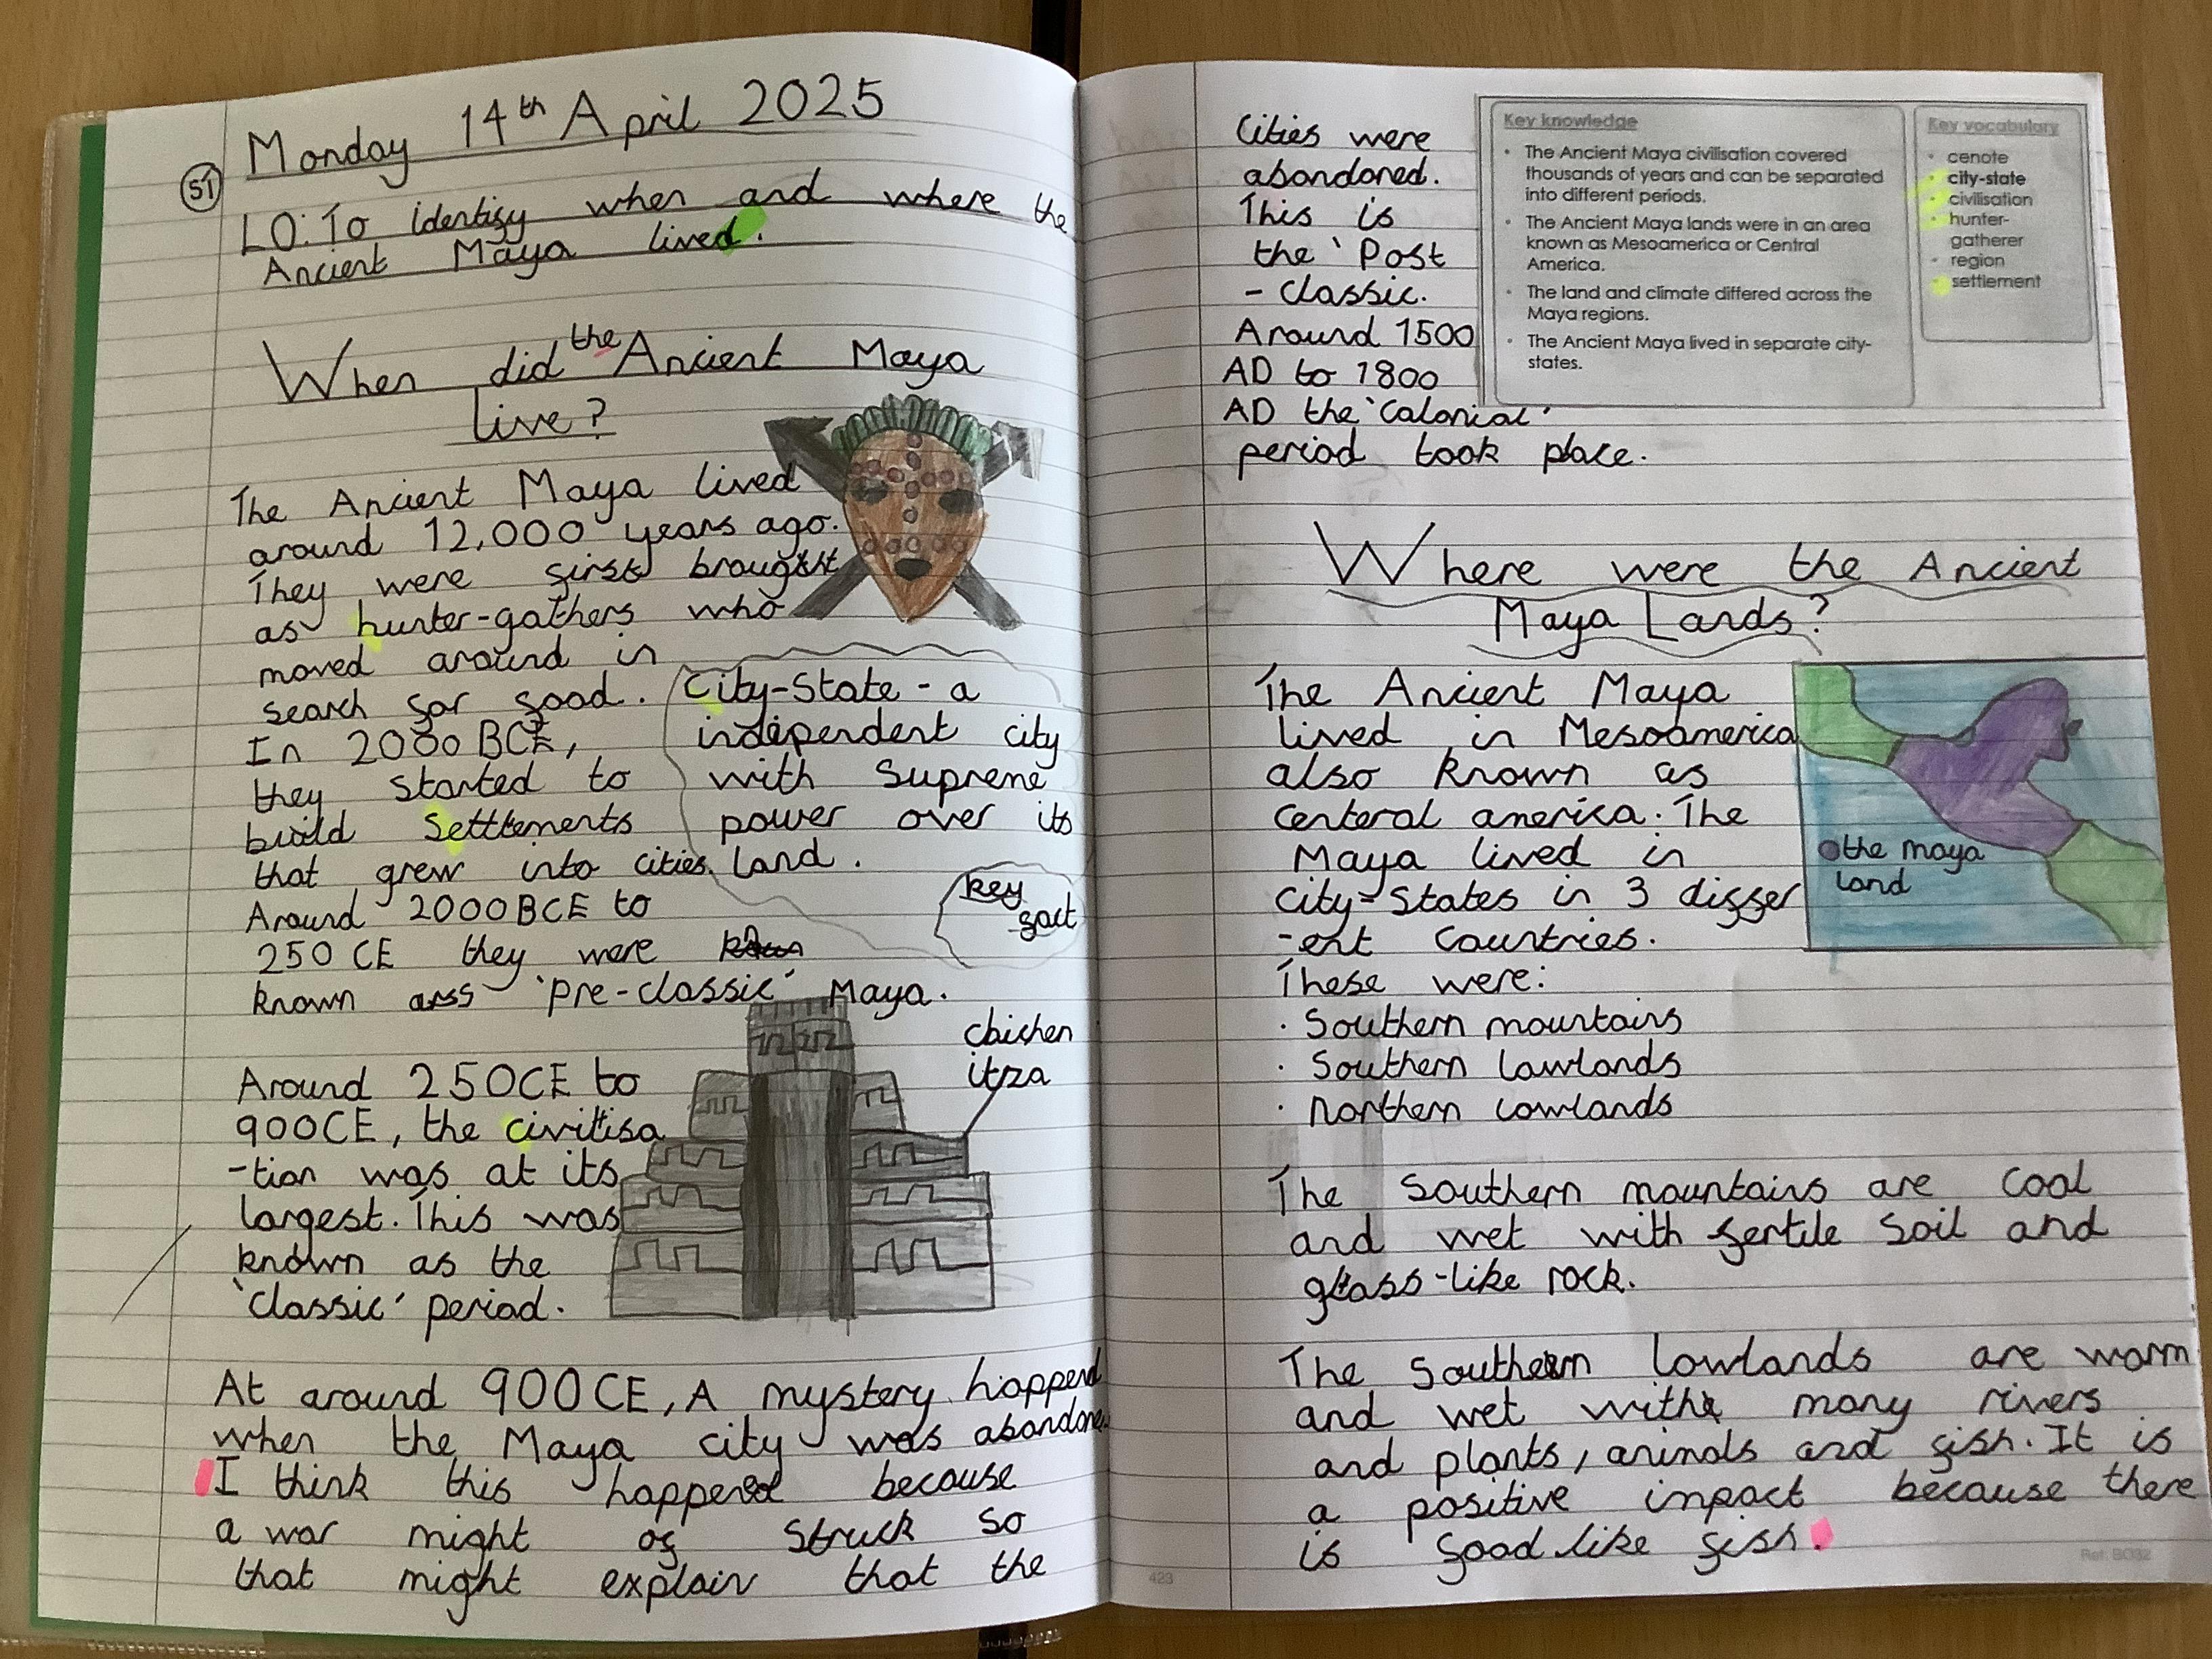 Monday 14th April 2025
SI
LO: To identify when and where the
Ancient Maya lived.
When did the Ancient Maya
live?
The Ancient Maya lived
around 12,000 years ago.
They were first brought
as hunter-gathers who
moved around in
search for food.
In 2000 BCE,
they started to
build settlements
that grew into cities.
Around 2000 BCE to
250 CE they were
known as 'pre-classic' Maya.
City-State - a
independent city
with supreme
power over its
land.
key
fact
chichen
itza
Around 250CE to
900CE, the civilisa
-tion was at its
largest. This was
known as the
'classic' period.
At around 900CE, A mystery happend
when the Maya city was abandone
I think this happened because
a war might of struck so
that might explain that the
Cities were
abandoned.
This is
the 'Post
- classic.
Around 1500
AD to 1800
AD the 'Calonial'
period took place.
Key knowledge
• The Ancient Maya civilisation covered
thousands of years and can be separated
into different periods.
• The Ancient Maya lands were in an area
known as Mesoamerica or Central
America.
• The land and climate differed across the
Maya regions.
• The Ancient Maya lived in separate city-
states.
Key vocabulary
• cenote
• city-state
• civilisation
• hunter-
gatherer
• region
• settlement
Where were the Ancient
Maya Lands?
The Ancient Maya
lived in Mesoamerica
also known as
Centeral america. The
Maya lived in
city-States in 3 differ
-ent Countries.
These were:
· Southern mountains
· Southern Lowlands
· Northern Lowlands
the maya
land
The Southern mountains are cool
and wet with fertile soil and
glass-like rock.
The Southern Lowlands are warm
and wet with many rivers
and plants, animals and fish. It is
a positive impact because there
is food like fish.
423
Ref: BO32